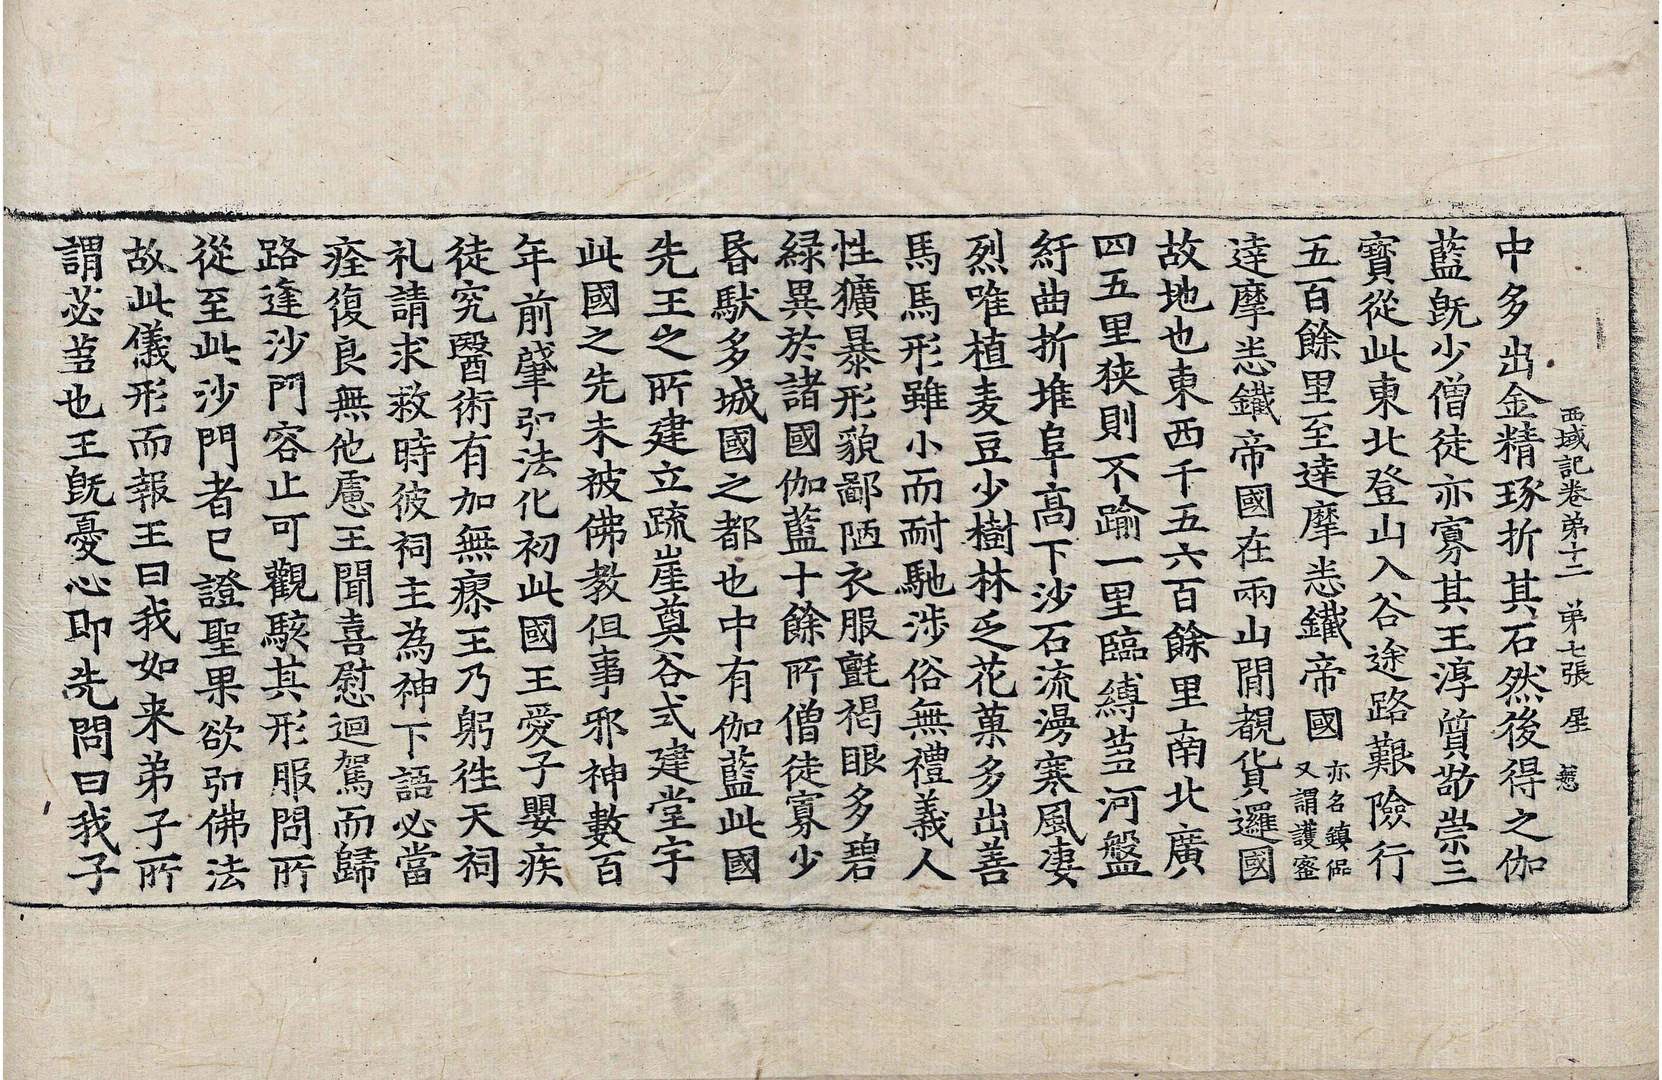 西域記卷第十二 第七張 星
中多出金精琢折其石然後得之伽
藍旣少僧徒亦寡其王淳質敬崇三
寶從此東北登山入谷途路艱險行
五百餘里至達摩悉鐵帝國亦名鎮偘又謂護蜜
達摩悉鐵帝國在兩山間覩貨邏國
故地也東西千五六百餘里南北廣
四五里狹則不踰一里臨縛芻河盤
紆曲折堆阜高下沙石流漫寒風凄
烈唯植麦豆少樹林乏花菓多出善
馬馬形雖小而耐馳涉俗無禮義人
性獷暴形貌鄙陋衣服氈褐眼多碧
緑異於諸國伽藍十餘所僧徒寡少
昏馱多城國之都也中有伽藍此國
先王之所建立疏崖奠谷式建堂宇
此國之先未被佛教但事邪神數百
年前肇弘法化初此國王愛子嬰疾
徒究醫術有加無瘳王乃躬往天祠
礼請求救時彼祠主為神下語必當
痊復良無他慮王聞喜慰迴駕而歸
路逢沙門容止可觀駭其形服問所
從至此沙門者已證聖果欲弘佛法
故此儀形而報王曰我如来弟子所
謂苾芻也王旣憂心即先問曰我子